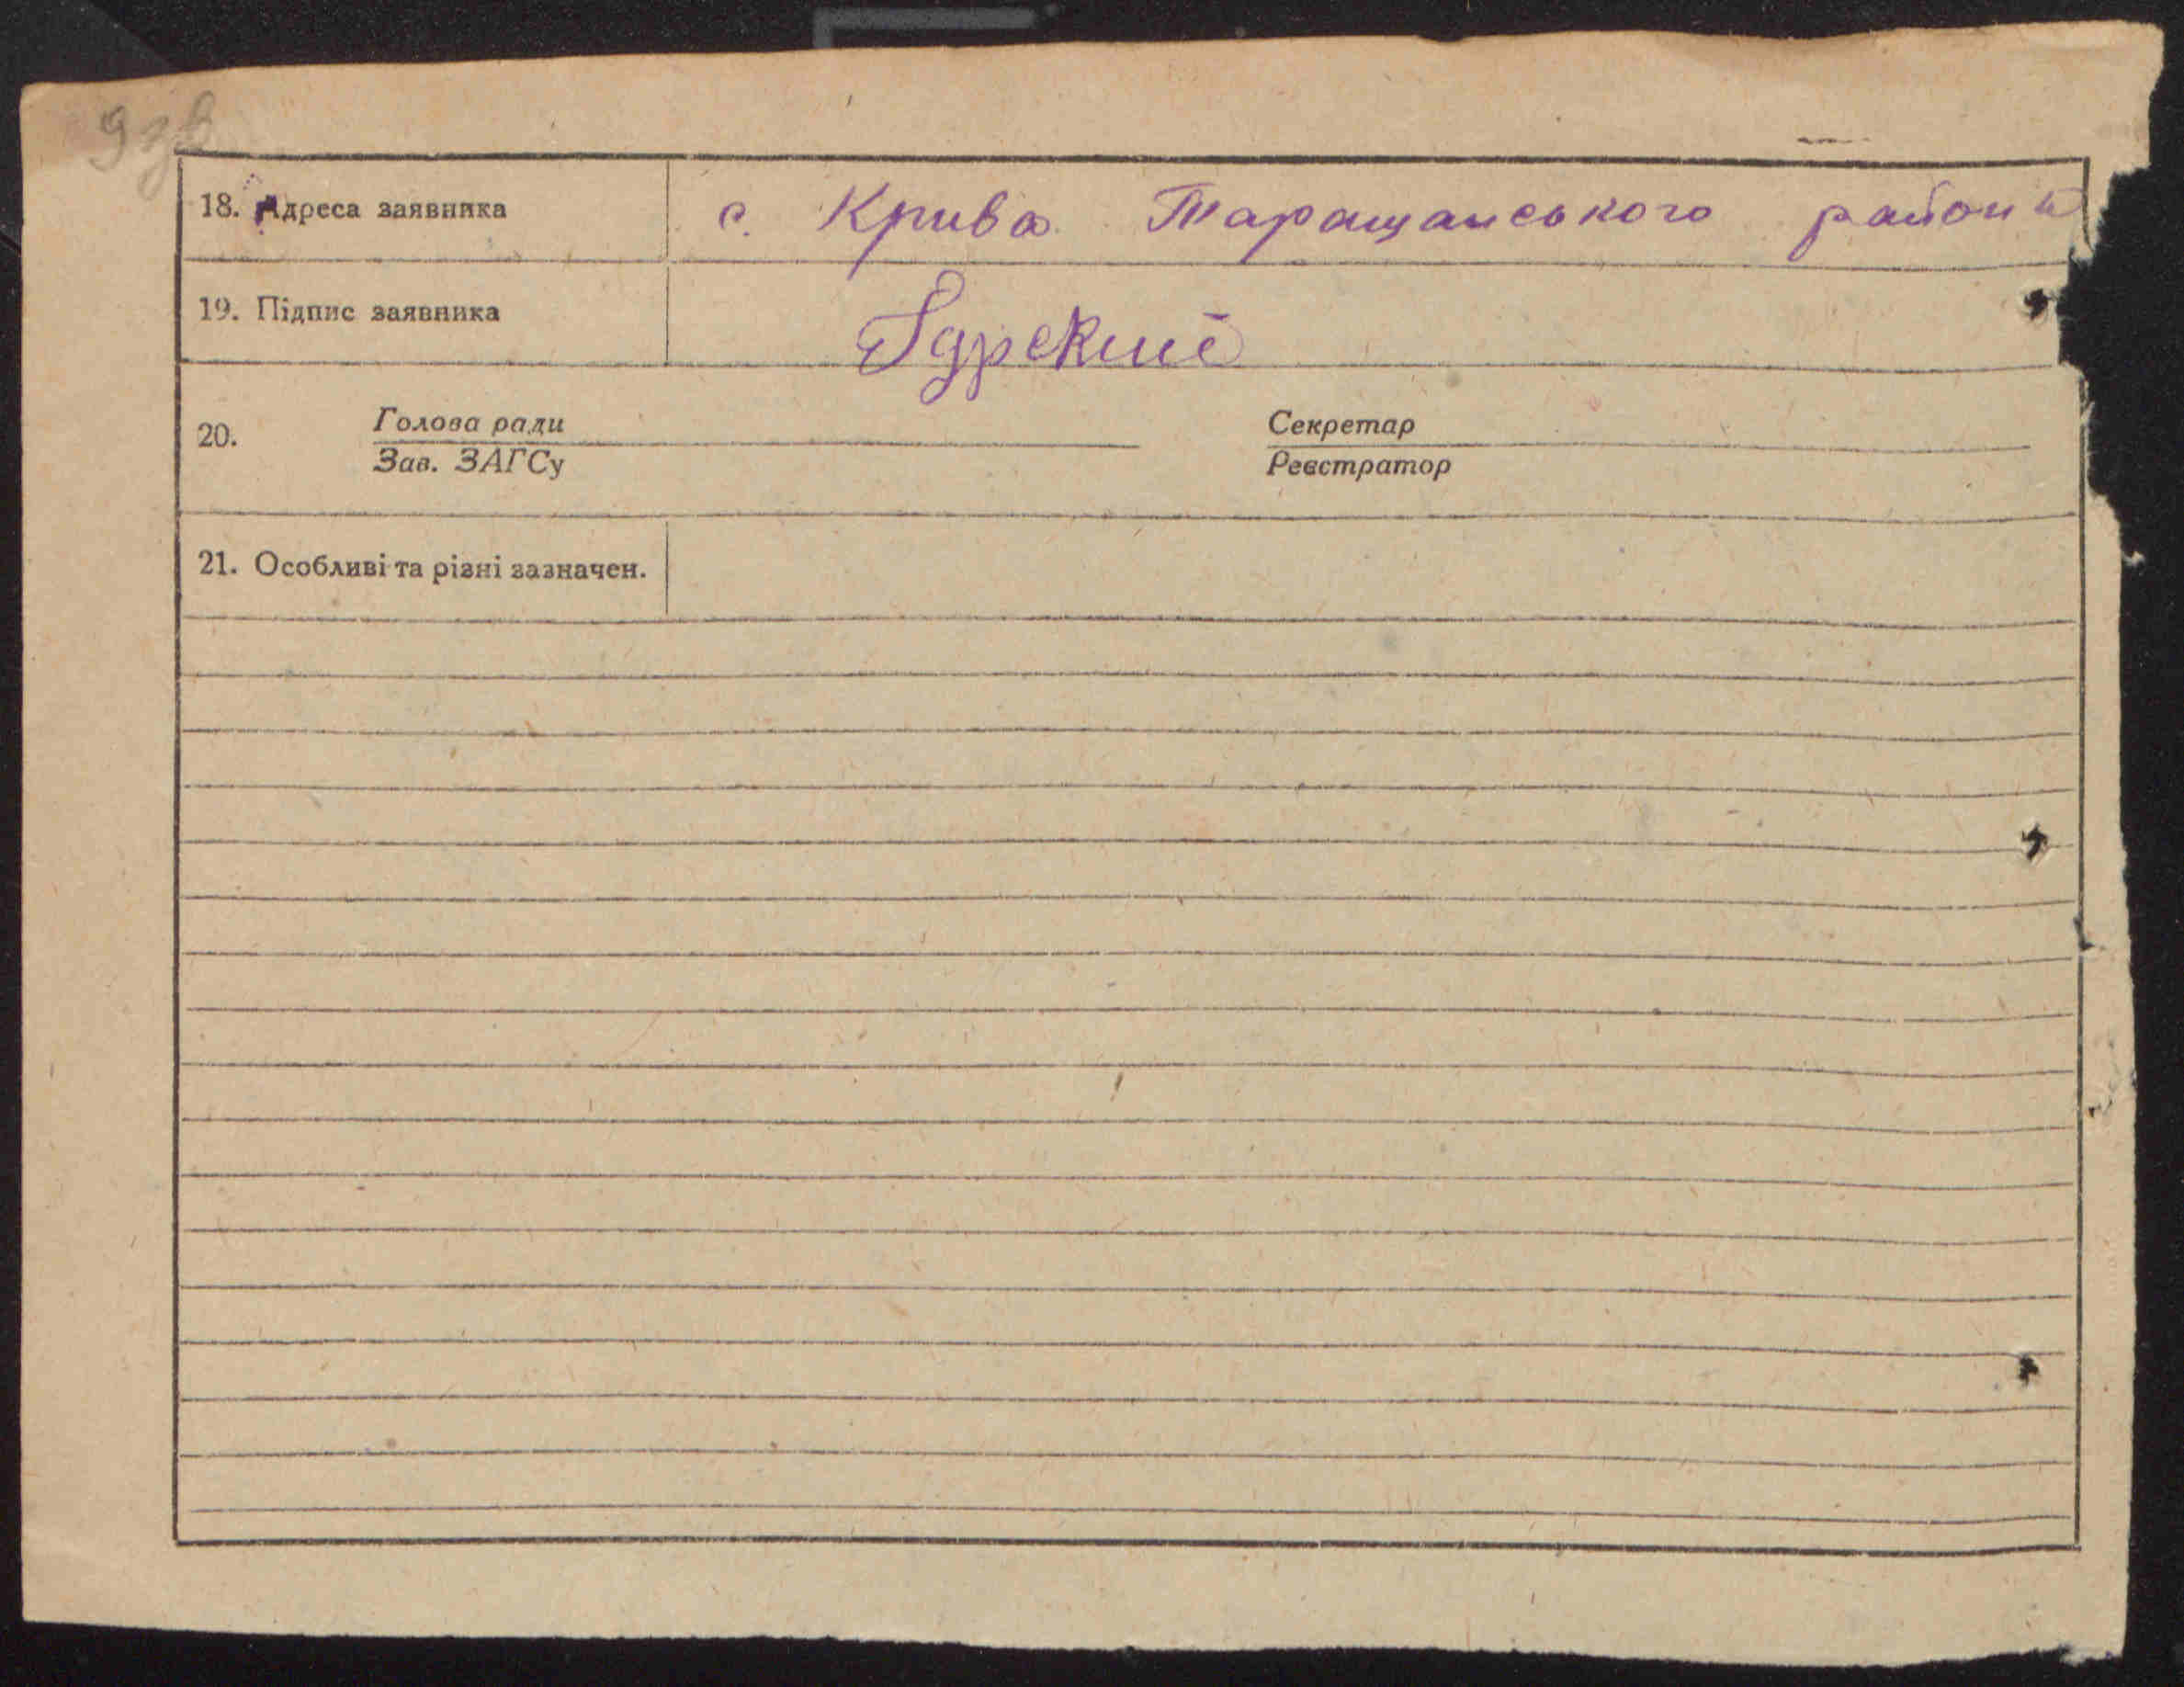 9зв
18. Адреса заявника с. Крива Таращанського району
19. Підпис заявника
20. Голова ради Секретар
Зав. ЗАГСу Реєстратор
21. Особливі та різні зазначен.